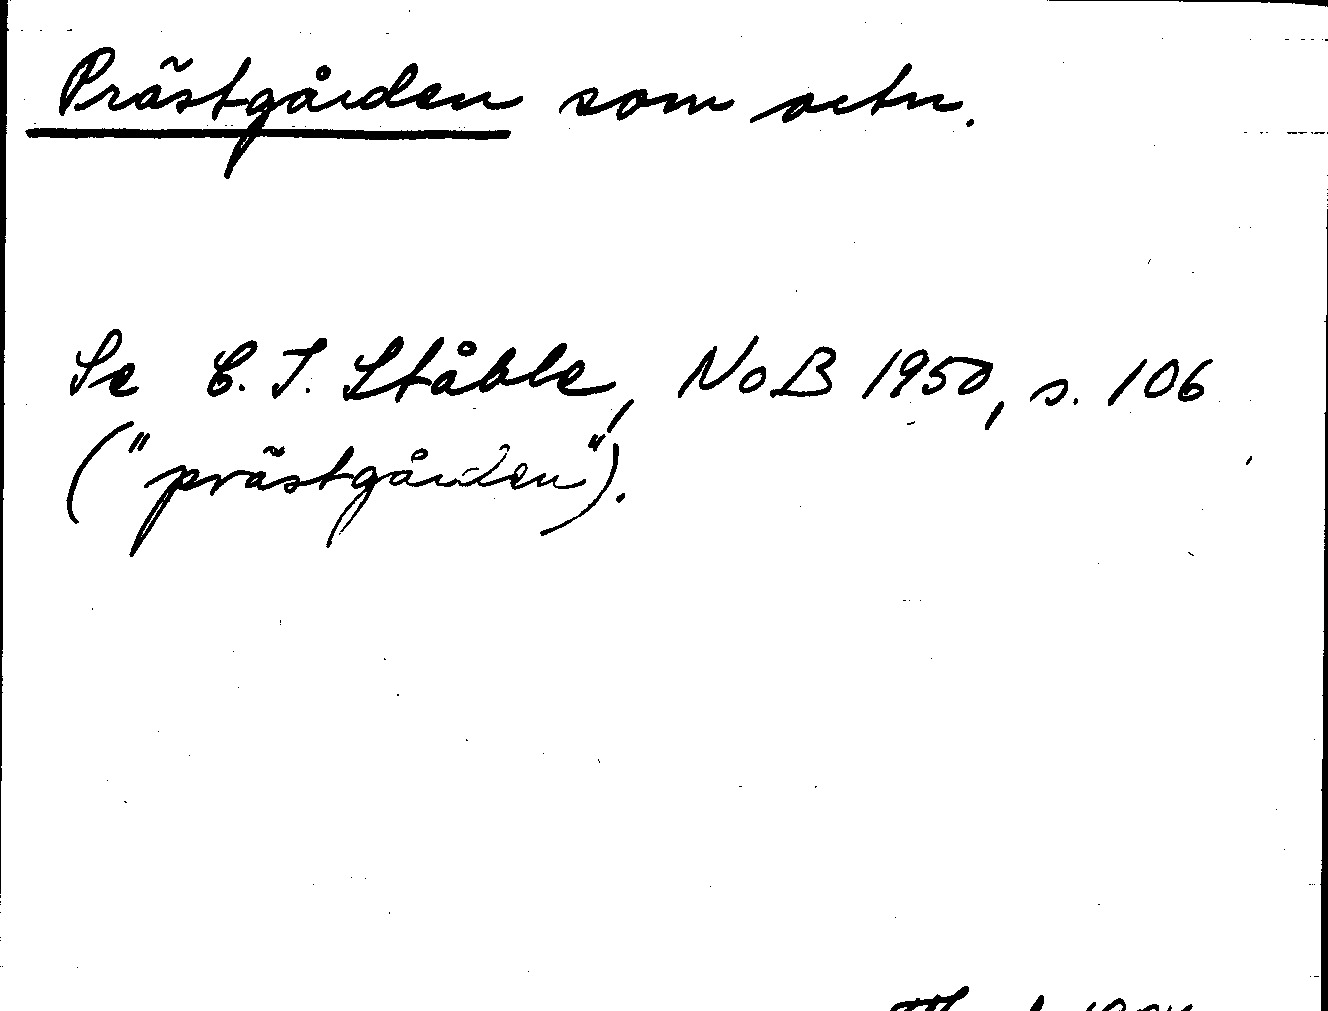 Prästgården som ortn.
Se C. I. Ståhle, NoB 1950, s. 106
("prästgården").